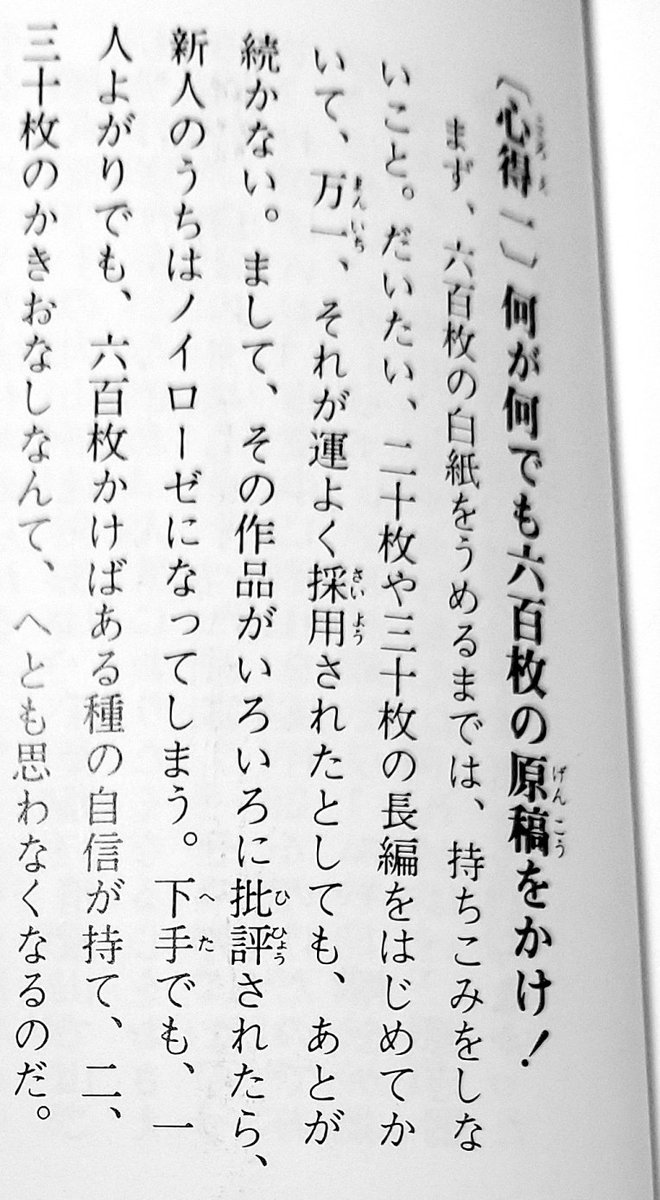 〔心得一〕何が何でも六百枚の原稿をかけ！
まず、六百枚の白紙をうめるまでは、持ちこみをしな
いこと。だいたい、二十枚や三十枚の長編をはじめてか
いて、万一、それが運よく採用されたとしても、あとが
続かない。まして、その作品がいろいろに批評されたら、
新人のうちはノイローゼになってしまう。下手でも、一
人よがりでも、六百枚かけばある種の自信が持て、二、
三十枚のかきおなしなんて、へとも思わなくなるのだ。